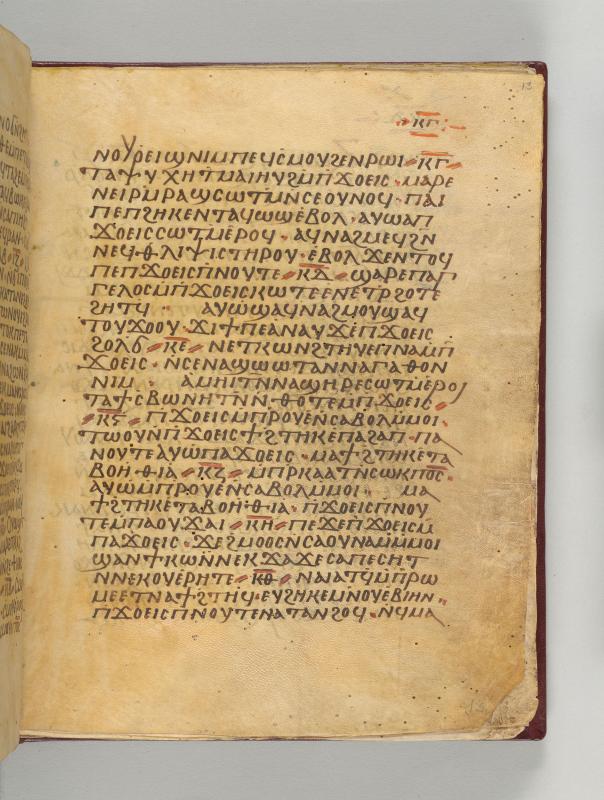 ⲕⲅ
ⲛⲟⲩⲟⲉⲓϣⲛⲓⲙⲡⲉϥⲥⲙⲟⲩϩⲉⲛⲣⲱⲓ · ⲕⲅ
ⲧⲁⲯⲩⲭⲏϯⲙⲁⲓⲏⲩϩⲙⲡϫⲟⲉⲓⲥ · ⲙⲁⲣⲉ
ⲛⲉⲓⲣⲙⲣⲁϣⲥⲱⲧⲙⲛⲥⲉⲟⲩⲛⲟϥ · ⲡⲁⲓ
ⲡⲉⲡϩⲏⲕⲉⲛⲧⲁϥⲱϣⲉⲃⲟⲗ · ⲁⲩⲱⲁⲡ
ϫⲟⲉⲓⲥⲥⲱⲧⲙⲉⲣⲟϥ · ⲁϥⲛⲁϩⲙⲉϥϩⲛ
ⲛⲉϥⲑⲗⲓⲯⲓⲥⲧⲏⲣⲟⲩ · ⲉⲃⲟⲗϫⲉⲛⲧⲟϥ
ⲡⲉⲡϫⲟⲉⲓⲥⲡⲛⲟⲩⲧⲉ · ⲕⲇ · ϣⲁⲣⲉⲡⲁⲅ
ⲅⲉⲗⲟⲥⲙⲡϫⲟⲉⲓⲥⲕⲱⲧⲉⲉⲛⲉⲧⲣϩⲟⲧⲉ
ϩⲏⲧϥ · ⲁⲩⲱϣⲁϥⲛⲁϩⲙⲟⲩϣⲁϥ
ⲧⲟⲩϫⲟⲟⲩ · ϫⲓϯⲡⲉⲁⲛⲁⲩϫⲉⲡϫⲟⲉⲓⲥ
ϩⲟⲗϭ · ⲕⲉ · ⲛⲉⲧⲕⲱⲛϩⲧⲏⲩⲉⲡⲛⲁⲙⲡ
ϫⲟⲉⲓⲥ · ⲛⲥⲉⲛⲁϣⲱⲱⲧⲁⲛⲛⲁⲅⲁⲑⲟⲛ
ⲛⲓⲙ · ⲁⲙⲏⲓⲧⲛⲛⲁϣⲏⲣⲉⲥⲱⲧⲙⲉⲣⲟⲓ
ⲧⲁϯⲥⲃⲱⲛⲏⲧⲛⲛ · ⲑⲟⲧⲉⲙⲡϫⲟⲉⲓⲥ ·
ⲕⲋ · ⲡϫⲟⲉⲓⲥⲙⲡⲣⲟⲩⲉⲛⲥⲁⲃⲟⲗⲙⲙⲟⲓ ·
ⲧⲱⲟⲩⲛⲡϫⲟⲉⲓⲥϯϩⲧⲏⲕⲉⲡⲁϩⲁⲡ · ⲡⲁ
ⲛⲟⲩⲧⲉⲁⲩⲱⲡⲁϫⲟⲉⲓⲥ · ⲙⲁϯϩⲧⲏⲕⲉⲧⲁ
ⲃⲟⲏⲑⲓⲁ · ⲕⲍ · ⲙⲡⲣⲕⲁⲁⲧⲛⲥⲱⲕⲡⲟⲥ ·
ⲁⲩⲱⲙⲡⲣⲟⲩⲉⲛⲥⲁⲃⲟⲗⲙⲙⲟⲓ · ⲙⲁ
ϯϩⲧⲏⲕⲉⲧⲁⲃⲟⲏⲑⲓⲁ · ⲡϫⲟⲉⲓⲥⲡⲛⲟⲩ
ⲧⲉⲙⲡⲁⲟⲩϫⲁⲓ · ⲕⲏ · ⲡⲉϫⲉⲡϫⲟⲉⲓⲥⲙ
ⲡⲁϫⲟⲉⲓⲥ · ϫⲉϩⲙⲟⲟⲥⲛⲥⲁⲟⲩⲛⲁⲙⲙⲙⲟⲓ
ϣⲁⲛϯⲕⲱⲛⲛⲉⲕϫⲁϫⲉⲥⲁⲡⲉⲥⲏⲧ
ⲛⲛⲉⲕⲟⲩⲉⲣⲏⲧⲉ · ⲕⲑ · ⲛⲁⲓⲁⲧϥⲙⲡⲣⲱ
ⲙⲉⲉⲧⲛⲁϯϩⲧⲏϥ · ⲉⲩϩⲏⲕⲉⲙⲛⲟⲩⲉⲃⲓⲏⲛ ·
ⲡϫⲟⲉⲓⲥⲡⲛⲟⲩⲧⲉⲛⲁⲧⲁⲛϩⲟϥ · ⲛϥⲙⲁ